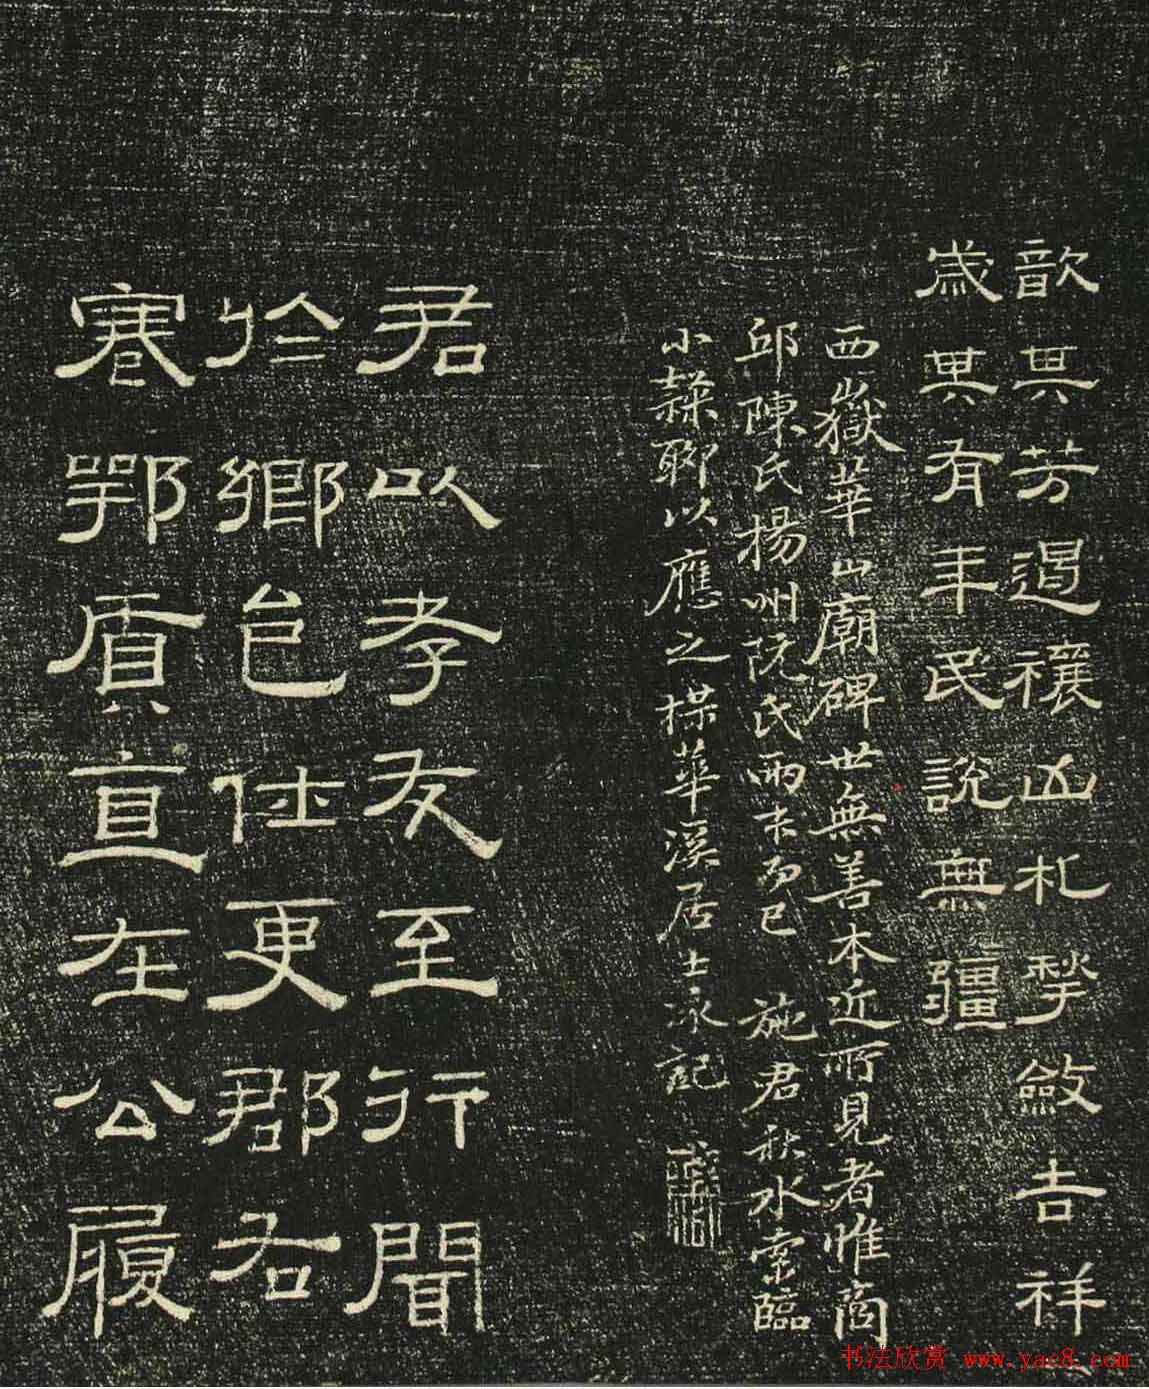 歆其芳遏禳凶札揫斂吉祥
歲其有年民說無疆
西嶽華山廟碑世無善本近所見者惟商
邱陳氏揚州阮氏兩本而已 施君秋水索臨
小隸聊以應之楳華溪居士泳記
君以孝友至行聞
於鄉邑仕更郡右
蹇鄂質直在公履
书法欣赏 www.yac8.com